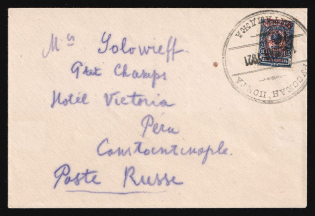 Mrs Solowieff
Ptit Champs
Hôtel Victoria
Pera
Constantinople.
Poste Russe
1921
ПОЧТА